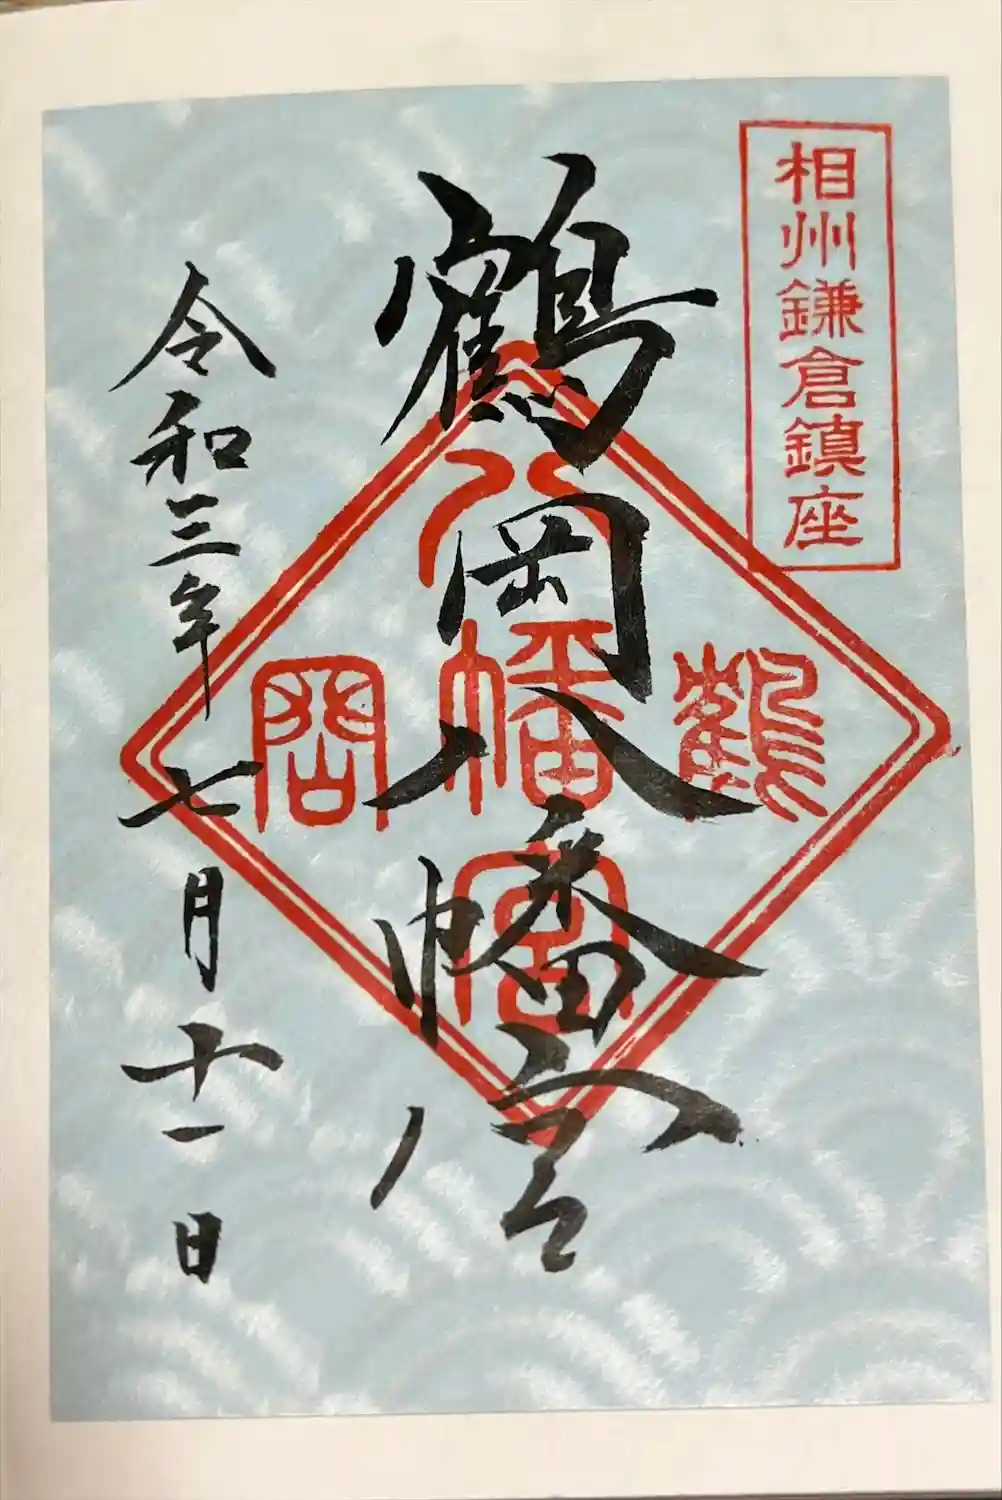 相州鎌倉鎮座
鶴岡八幡宮
鶴
八幡宮
岡
令和三年七月十一日